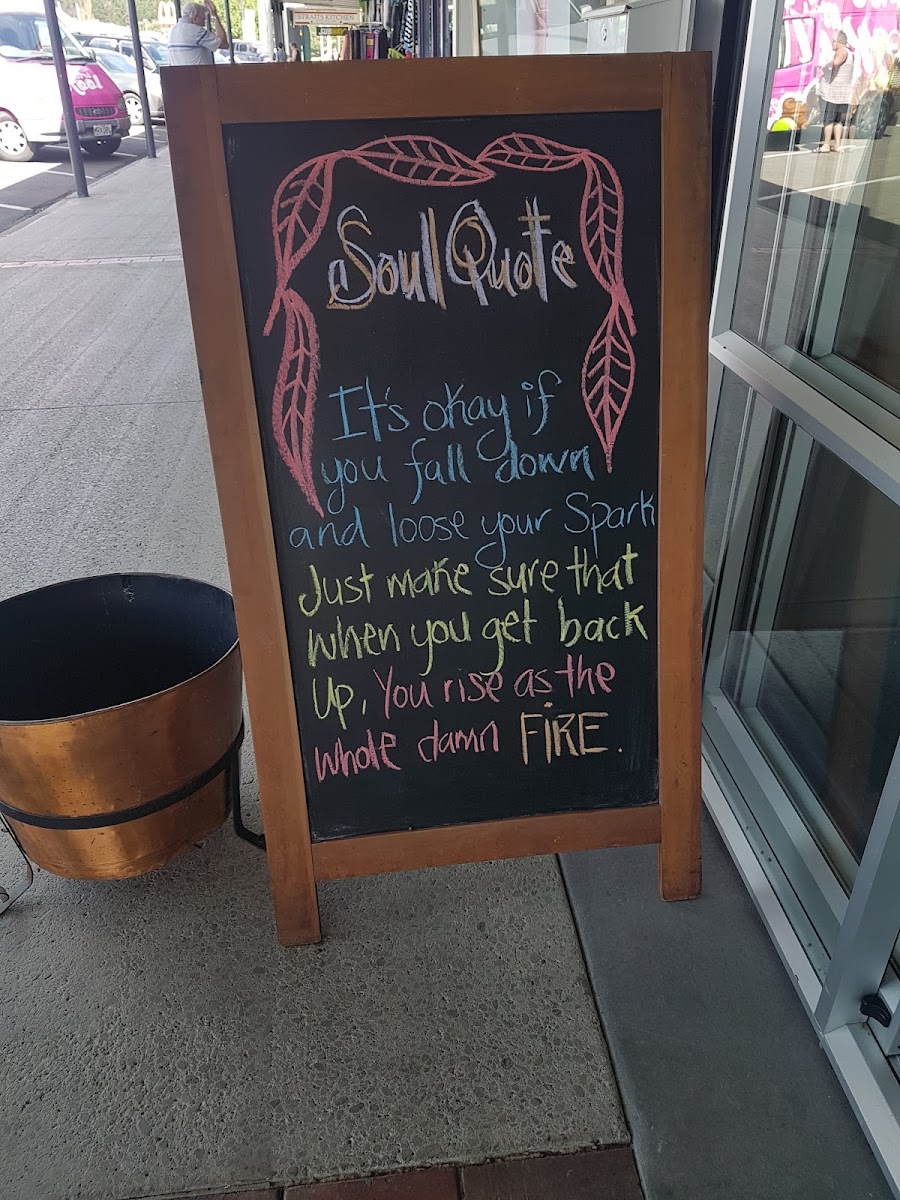 STRAITS KITCHEN
Soul Quote
It's okay if
you fall down
and loose your Spark
Just make sure that
when you get back
Up, You rise as the
whole damn FIRE.